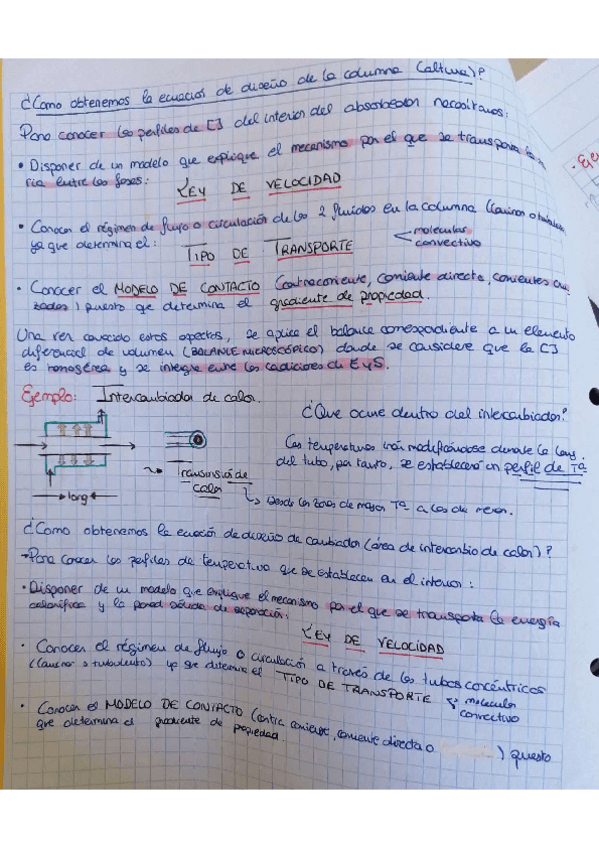 ¿Como obtenemos la ecuación de diseño de la columna (altura)?
Para conocer los perfiles de [ ] del interior del absorbedor necesitamos:
• Disponer de un modelo que explique el mecanismo por el que se transporta
ria entre las fases:
LEY DE VELOCIDAD
• Conocer el régimen de flujo o circulación de los 2 fluidos en la columna (laminar o
ya que determina el:
TIPO DE TRANSPORTE
molecular
convectivo
• Conocer el MODELO DE CONTACTO (contracorriente, corriente directa, corrientes cru
zadas) puesto que determina el gradiente de propiedad.
Una vez conocido estos aspectos, se aplica el balance correspondiente a un elemento
diferencial de volumen (BALANCE MICROSCÓPICO) donde se considere que la [ ]
es homogénea y se integre entre las condiciones de E y S.
Ejemplo: Intercambiador de calor.
¿Que ocurre dentro del intercambiador?
Las temperaturas irán modificándose durante la long.
del tubo, por tanto, se establecerá un perfil de Tª
Transmisión de
calor
Desde las zonas de mayor Tª a las de menor.
long
¿Como obtenemos la ecuación de diseño de cambiador (área de intercambio de calor)?
→Para conocer los perfiles de temperatura que se establecen en el interior:
• Disponer de un modelo que explique el mecanismo por el que se transporta la energía
calorífica y la pared sólida de separación:
LEY DE VELOCIDAD
• Conocer el régimen de flujo o circulación a través de los tubos concéntricos
(laminar o turbulento) ya que determina el TIPO DE TRANSPORTE
molecular
convectivo
• Conocer el MODELO DE CONTACTO (contra corriente, corriente directa o ) puesto
que determina el gradiente de propiedad